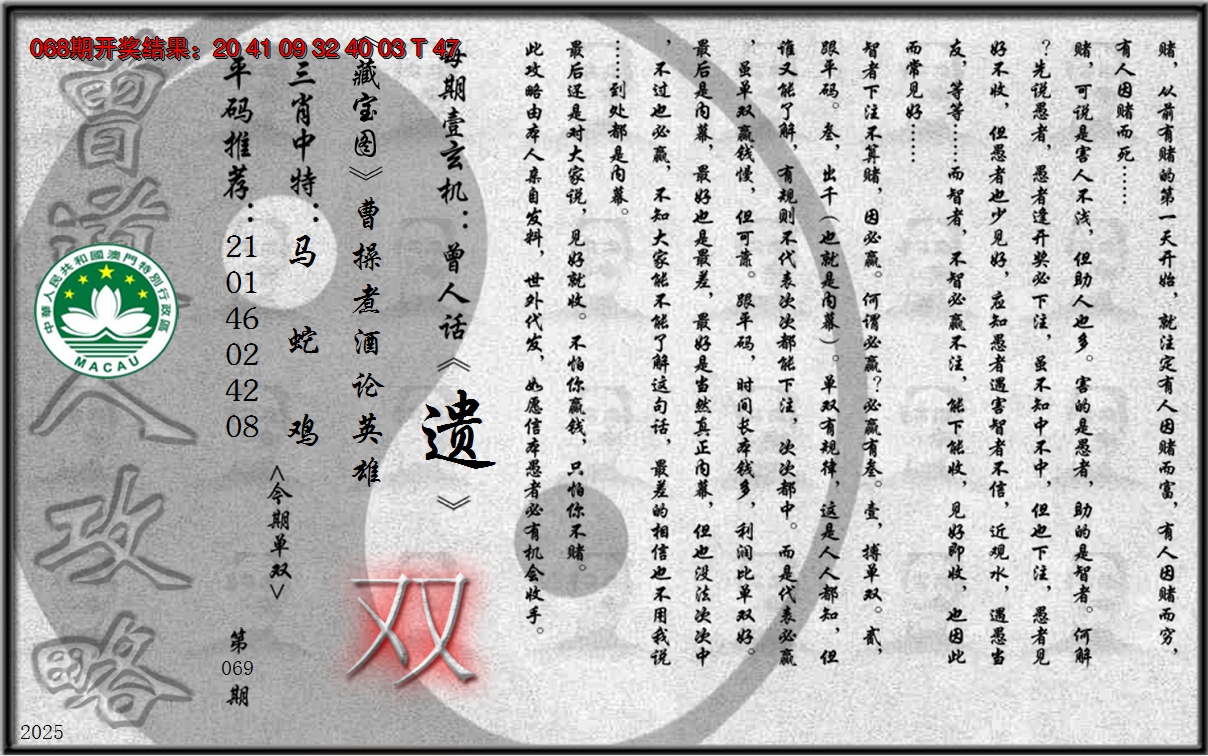 068期开奖结果：20 41 09 32 40 03 T 47
赌，从前有赌的第一天开始，就注定有人因赌而富，有人因赌而穷，
有人因赌而死……
赌，可说是害人不浅，但助人也多。害的是愚者，助的是智者。何解
？先说愚者，愚者逢开奖必下注，虽不知中不中，但也下注，愚者见
好不收，但愚者也少见好，应知愚者遇害智者不信，近观水，遇愚当
友，等等……而智者，不智必赢不注，能下能收，见好即收，也因此
而常见好……
智者下注不算赌，因必赢。何谓必赢？必赢有叁。壹，搏单双。贰，
跟平码。叁，出千（也就是内幕）。单双有规律，这是人人都知，但
谁又能了解，有规则不代表次次都能下注，次次都中。而是代表必赢
，虽单双赢钱慢，但可靠。跟平码，时间长本钱多，利润比单双好。
最后是内幕，最好也是最差，最好是当然真正内幕，但也没法次次中
，不过也必赢，不知大家能不能了解这句话，最差的相信也不用我说
……到处都是内幕。
最后还是对大家说，见好就收。不怕你赢钱，只怕你不赌。
此攻略由本人亲自发料，世外代发，如愿信本愚者必有机会收手。
每期壹玄机：曾人话《遗》
《藏宝图》曹操煮酒论英雄
双
三肖中特：马 蛇 鸡
<今期单双>
平码推荐：21 01 46 02 42 08
第069期
曾道人攻略
中華人民共和國澳門特別行政區
MACAU
2025